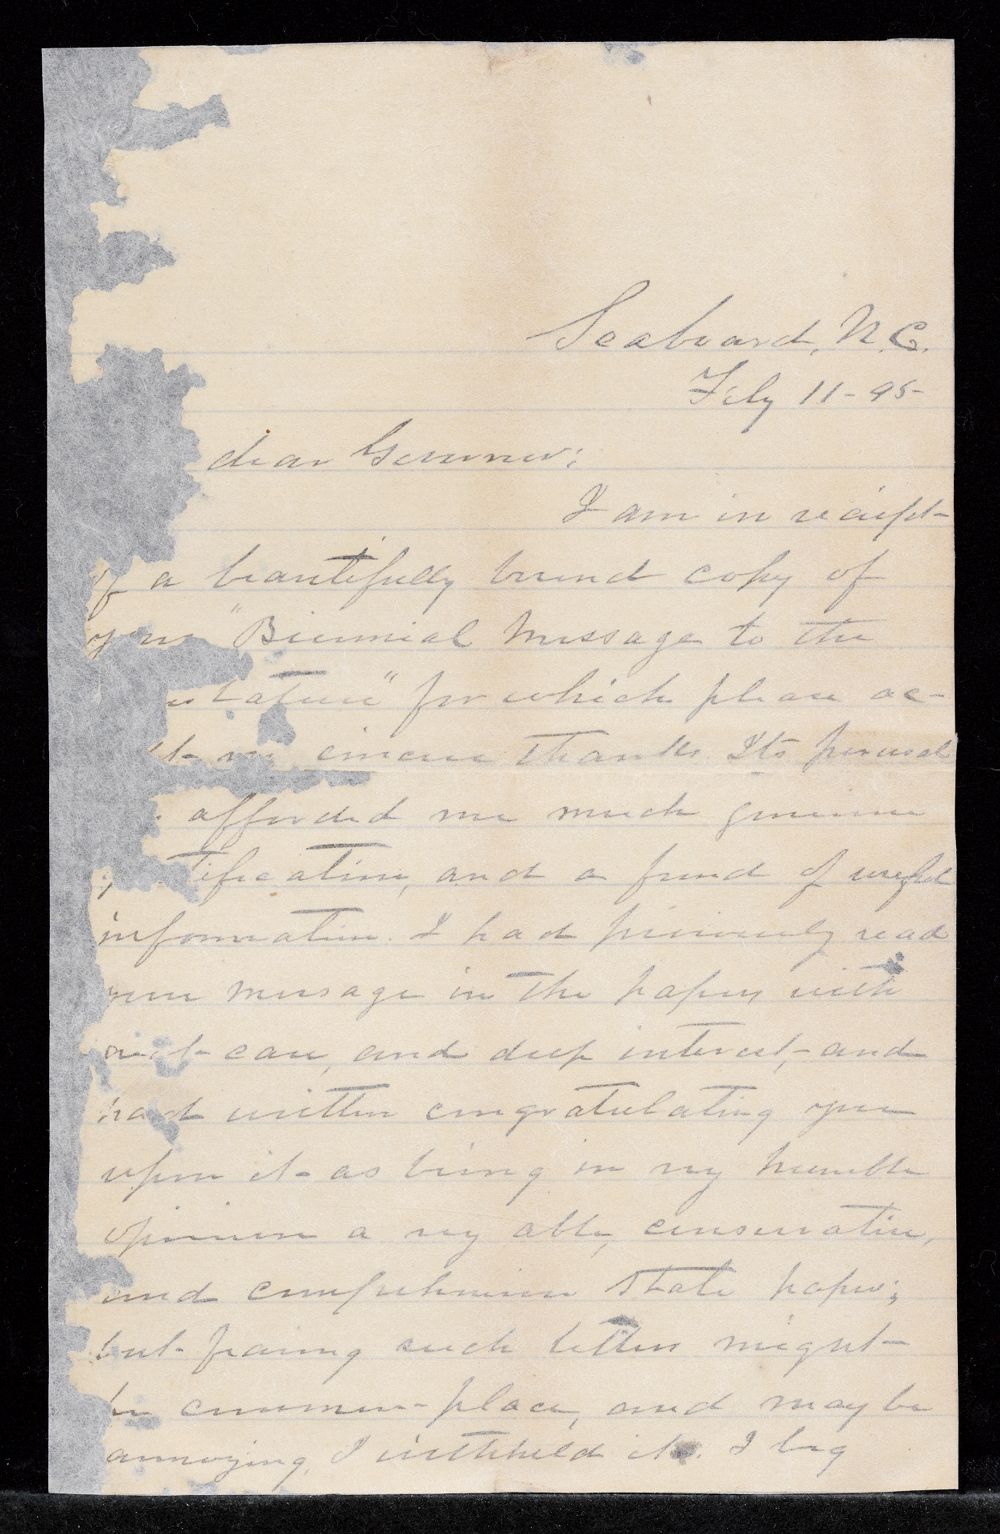 Seaboard, N.C.
Feby 11-95
dear Governor;
I am in reciept
of a beautifully bound copy of
your "Biennial Message to the
islature" for which please ac-
my sincere thanks. Its perusal
afforded me much genuine
tification, and a fund of useful
information. I had previously read
your message in the papers with
great care, and deep interest, and
had written congratulating you
upon it as being in my humble
opinion a very able, conservative,
and comprehensive State paper;
but fearing such letters might
be common-place, and may be
annoying, I withheld it. I beg